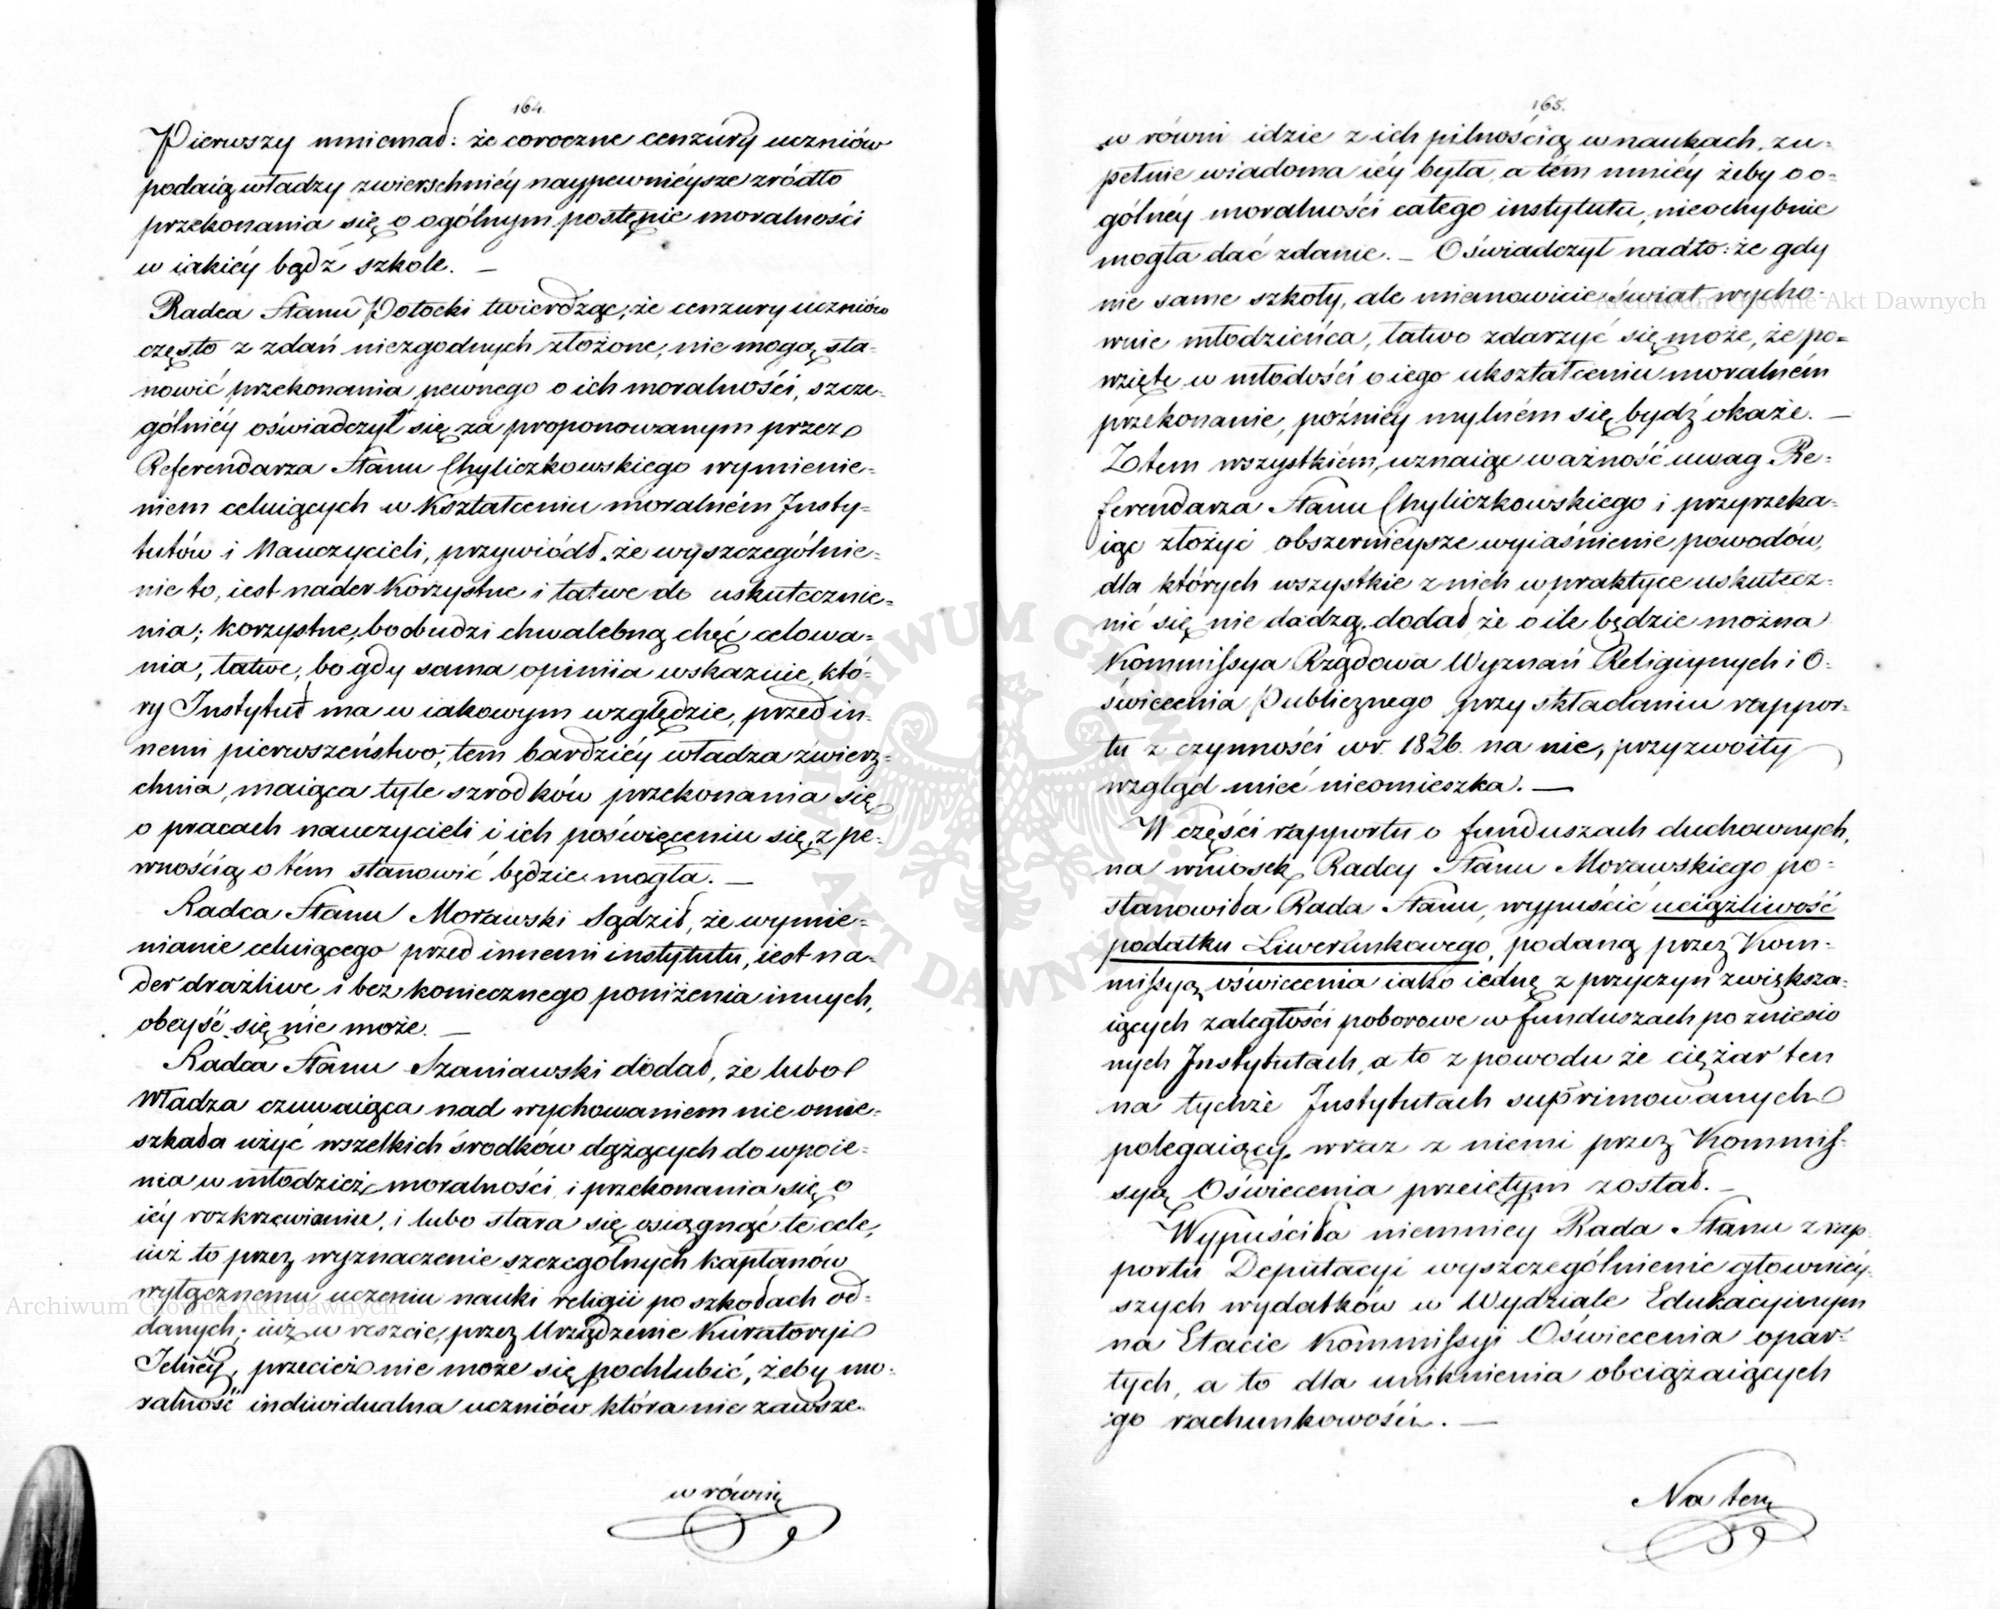 164.
Pierwszy mniemał: że coroczne cenzury uczniów
podaią władzy zwierschniéy naypewniéysze zródło
przekonania się o ogólnym postępie moralności
w iakiéy bądź szkole. —
Radca Stanu Potocki twierdząc, że cenzury uczniów
często z zdań niezgodnych złożone, nie mogą sta-
nowić przekonania pewnego o ich moralności, szcze-
gólniéy oświadczył się za proponowanym przez
Referendarza Stanu Chyliczkowskiego wymienie-
niem celuiących w kształceniu moralném Insty-
tutów i Nauczycieli, przywiódł, że wyszczególnie-
nie to, iest nader korzystne i łatwe do uskutecznie-
nia; korzystne, bo obudzi chwalebną chęć celowa-
nia, łatwe, bo gdy sama opiniia wskazuie, któ-
ry Instytut ma w iakowym względzie, przed in-
nemi pierwszeństwo, tem bardziéy władza zwierz-
chnia, maiąca tyle szrodków przekonania się
o pracach nauczycieli i ich poświęceniu się, z pe-
wnością o tém stanowić będzie mogła. —
Radca Stanu Morawski sądził, że wymie-
nianie celuiącego przed innemi instytutu, iest na-
der drażliwe i bez koniecznego poniżenia innych,
obeyść się nie może. —
Radca Stanu Szaniawski dodał, że lubo
Władza czuwaiąca nad wychowaniem nie omie-
szkała użyć wszelkich środków dążących do wpoie-
nia w młodzież moralności i przekonania się o
iéy rozkrzewieniu, i lubo stara się osiągnąć te cele,
iuż to przez wyznaczenie szczególnych kapłanów
wyłącznemu uczeniu nauki religii po szkołach od-
danych; iuż w reszcie, przez Urządzenie Kuratoryi
Jelnéy, przecież nie może się pochlubić, żeby mo-
ralność indiwidualna uczniów która nie zawsze
w równi
165.
w równi idzie z ich pilnością w naukach, zu-
pełnie wiadoma iéy była, a tém mniéy żeby o o-
gólnéy moralności całego instytutu, nieochybnie
mogła dać zdanie. — Oświadczył nadto: że gdy
nie same szkoły, ale mianowicie świat wycho-
wuie młodzieńca, łatwo zdarzyć się może, że po-
wzięte w młodości o iego ukształceniu moralném
przekonanie, późniéy mylném się bydź okaże. —
Z tem wszystkiém, uznaiąc ważność uwag Re-
ferendarza Stanu Chyliczkowskiego i przyrzeka-
iąc złożyć obszernieysze wyiaśnienie powodów,
dla których wszystkie z nich w praktyce uskutecz-
nić się nie dadzą, dodał, że o ile będzie można
Kommissya Rządowa Wyznań Religiynych i O-
świecenia Publicznego przy składaniu rappor-
tu z czynności w r. 1826. na nie, przyzwoity
wzgląd mieć nieomieszka. —
W części rapportu o funduszach duchownych,
na wniosek Radcy Stanu Morawskiego po-
stanowiła Rada Stanu, wypuścić uciążliwość
podatku Liwerunkowego, podaną przez Kom-
missyą oświecenia iako iednę z przyczyn zwiększa-
iących zaległości poborowe w funduszach po zniesio
nych Instytutach, a to z powodu że ciężar ten
na tychże Instytutach suprimowanych
polegaiący, wraz z niemi przez Kommis-
syą Oświecenia przeiętym został. —
Wypuściła niemniey Rada Stanu z rap-
portu Deputacyi wyszczególnienie głowniéy-
szych wydatków w Wydziale Edukacyinym
na Etacie Kommissyi Oświecenia opar-
tych, a to dla uniknienia obciążaiących
go rachunkowości. —
Na tem
Archiwum Główne Akt Dawnych
Archiwum Główne Akt Dawnych
ARCHIWUM GŁÓWNE AKT DAWNYCH